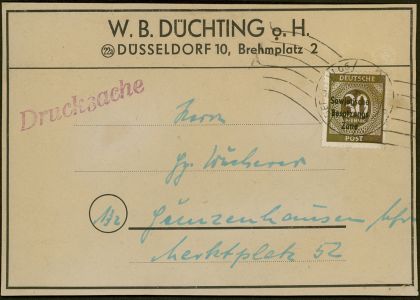 W. B. DÜCHTING o. H.
(22a) DÜSSELDORF 10, Brehmplatz 2
Drucksache
DEUTSCHE
30
Sowjetische
Besatzungs
Zone
POST
Herrn
Gg. Wucherer
Gunzenhausen
Marktplatz 52